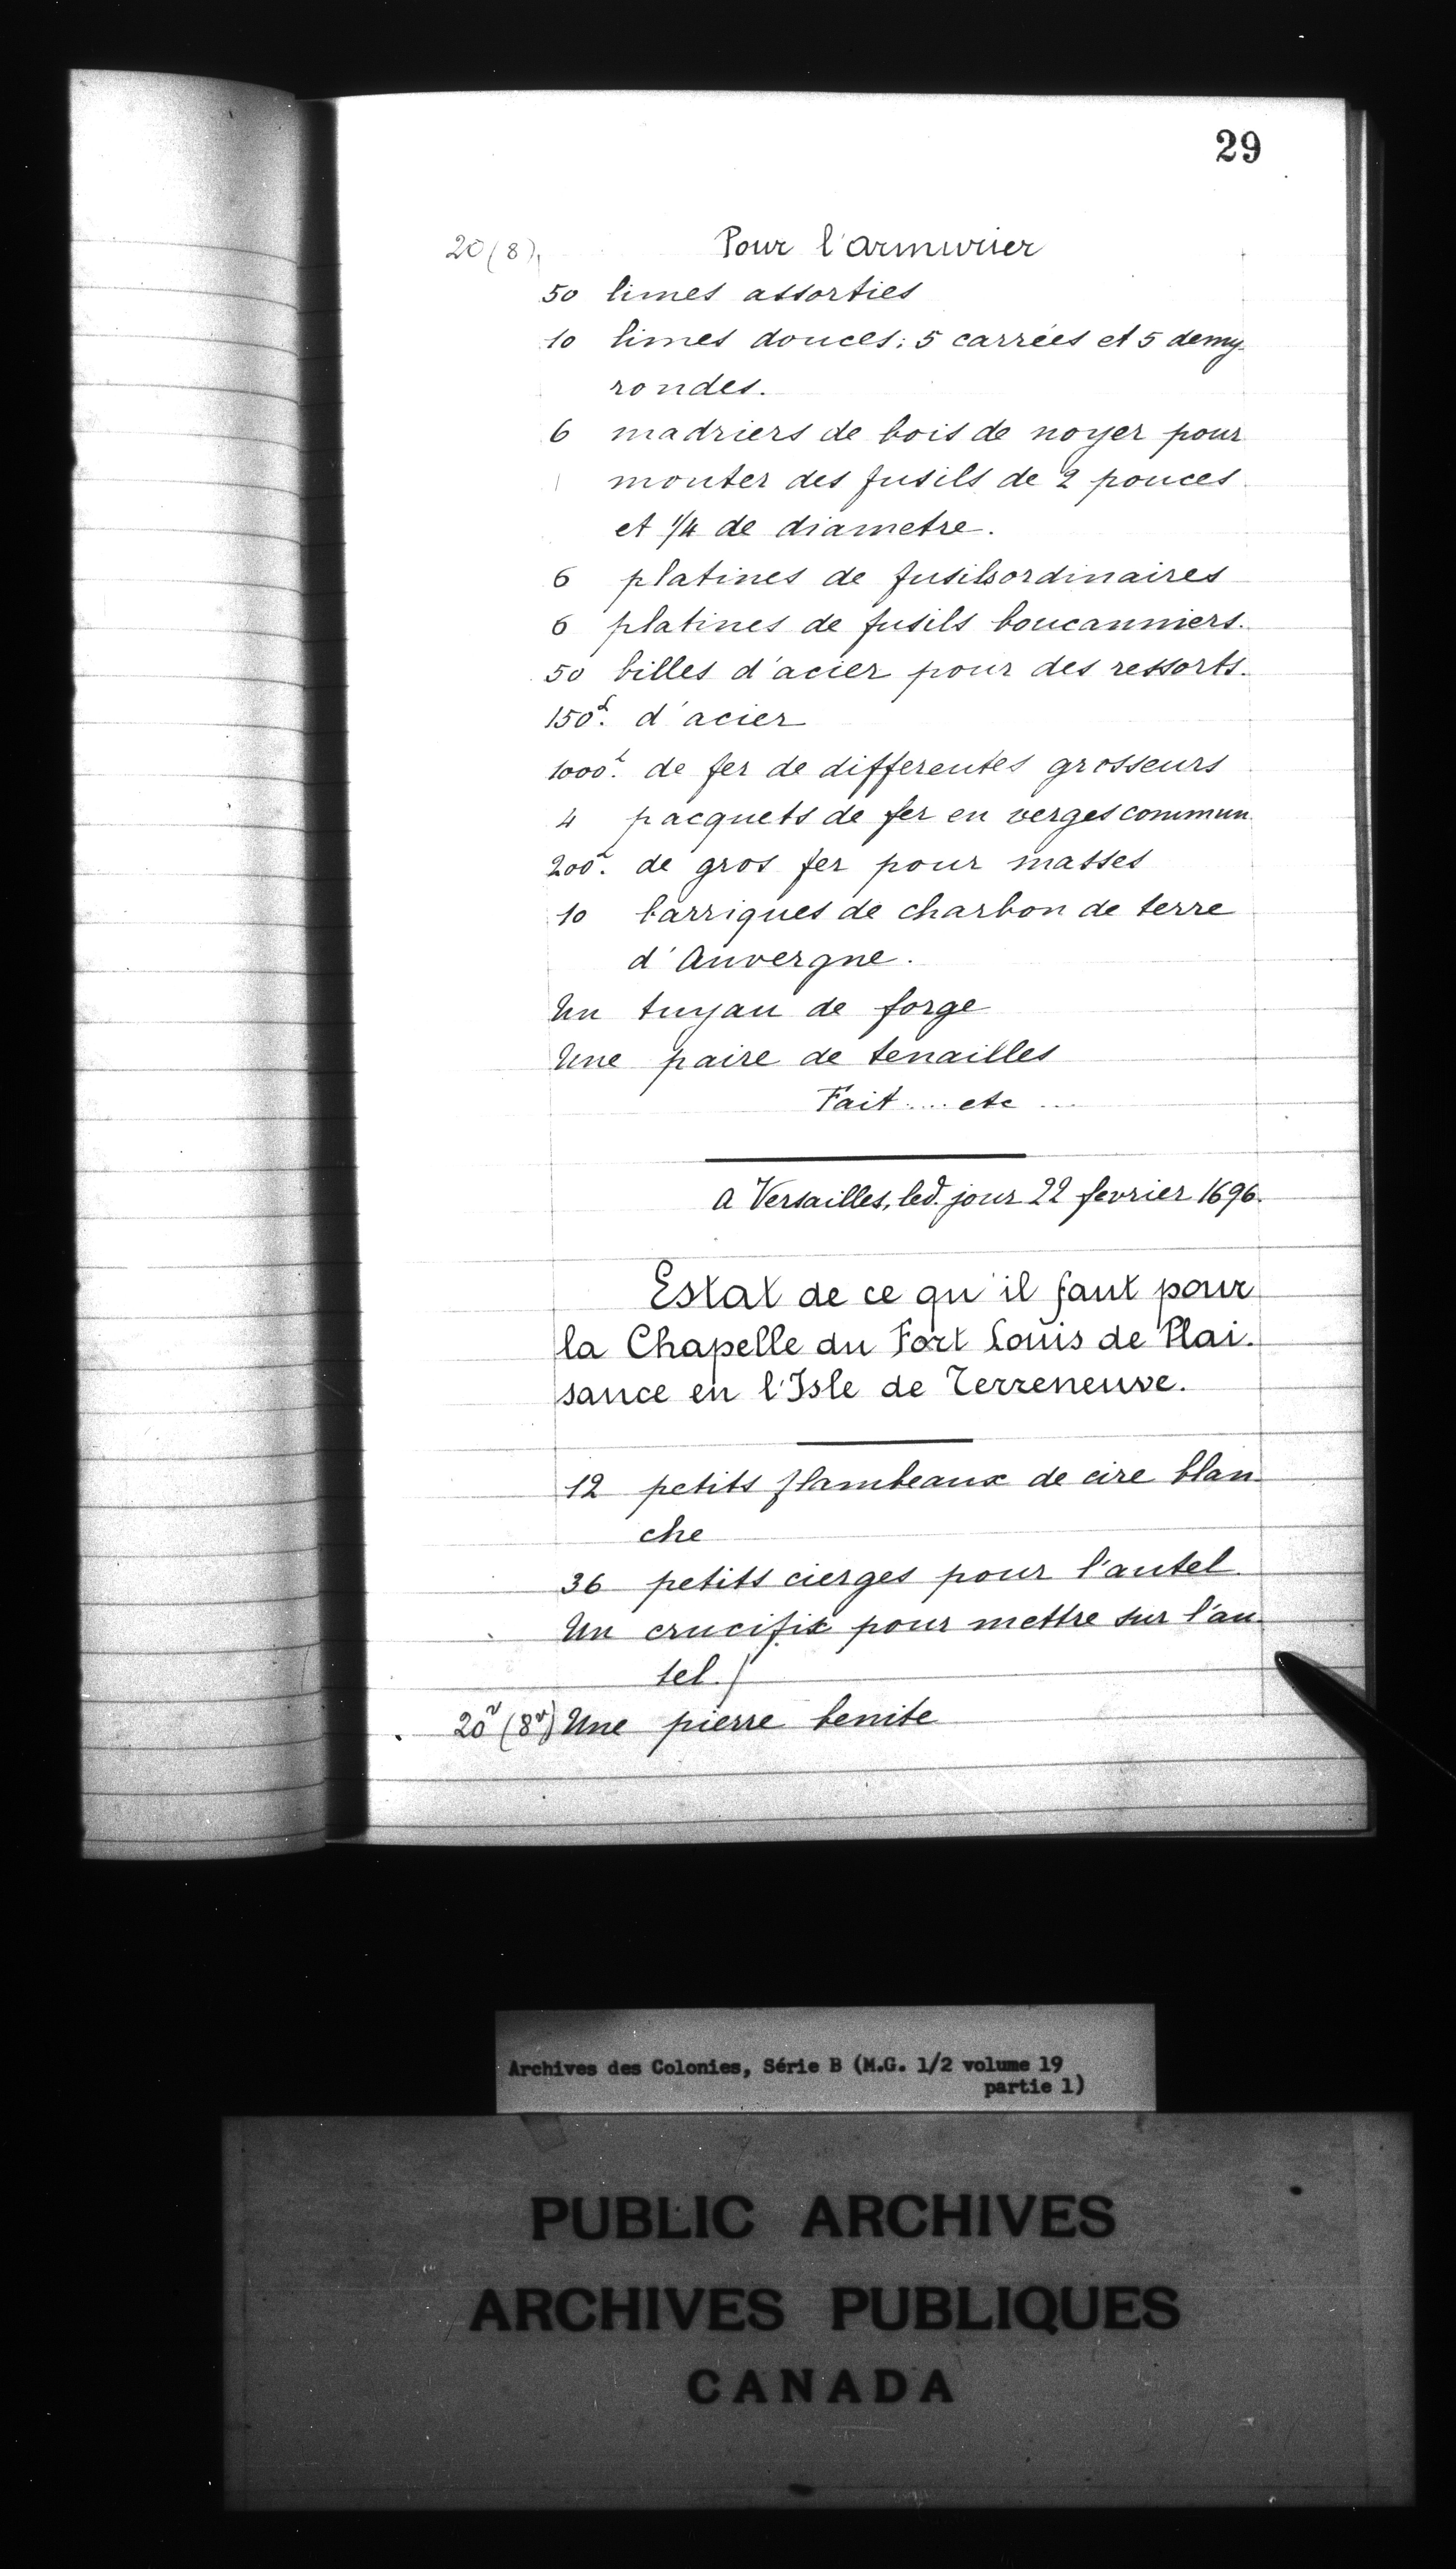 29
20 (8)
Pour l'armurier
50 limes assorties
10 limes douces: 5 carrées et 5 demy
rondes.
6 madriers de bois de noyer pour
monter des fusils de 2 pouces
et 1/4 de diametre.
6 platines de fusils ordinaires
6 platines de fusils boucanniers.
50 billes d'acier pour des ressorts.
150 L. d'acier
1000 L. de fer de differentes grosseurs
4 pacquets de fer en verges commun
200 L. de gros fer pour masses
10 barriques de charbon de terre
d'Auvergne.
Un tuyau de forge
Une paire de tenailles
Fait .... etc ...
A Versailles, led. jour 22 fevrier 1696.
Estat de ce qu'il faut pour
la Chapelle du Fort Louis de Plai.
sance en l'Isle de Terreneuve.
12 petits flambeaux de cire blan
che
36 petits cierges pour l'autel.
Un crucifix pour mettre sur l'au
tel. /
20v (8v) Une pierre benite
Archives des Colonies, Série B (M.G. 1/2 volume 19
partie 1)
PUBLIC ARCHIVES
ARCHIVES PUBLIQUES
CANADA